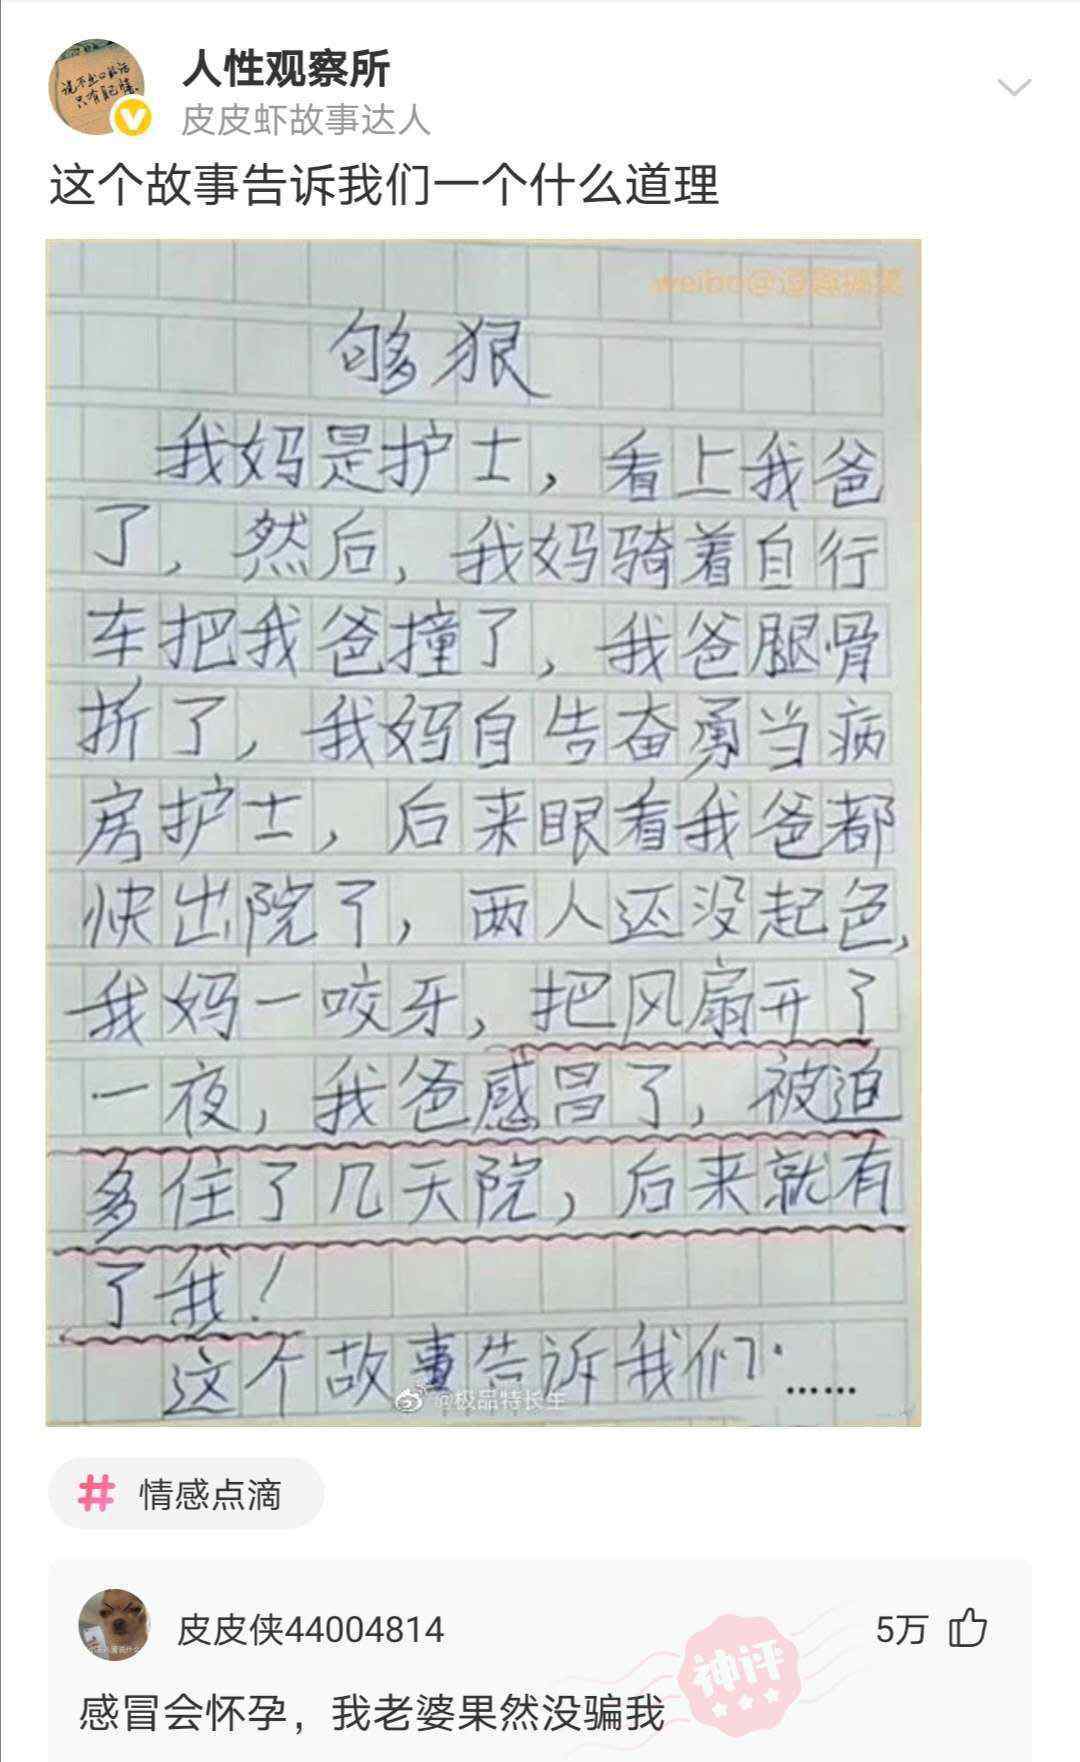 人性观察所
皮皮虾故事达人
这个故事告诉我们一个什么道理
够狠
我妈是护士，看上我爸
了，然后，我妈骑着自行
车把我爸撞了，我爸腿骨
折了，我妈自告奋勇当病
房护士，后来眼看我爸都
快出院了，两人还没起色，
我妈一咬牙，把风扇开了
一夜，我爸感冒了，被迫
多住了几天院，后来就有
了我！
这个故事告诉我们……
@极品特长生
# 情感点滴
皮皮侠44004814
5万
神评
感冒会怀孕，我老婆果然没骗我